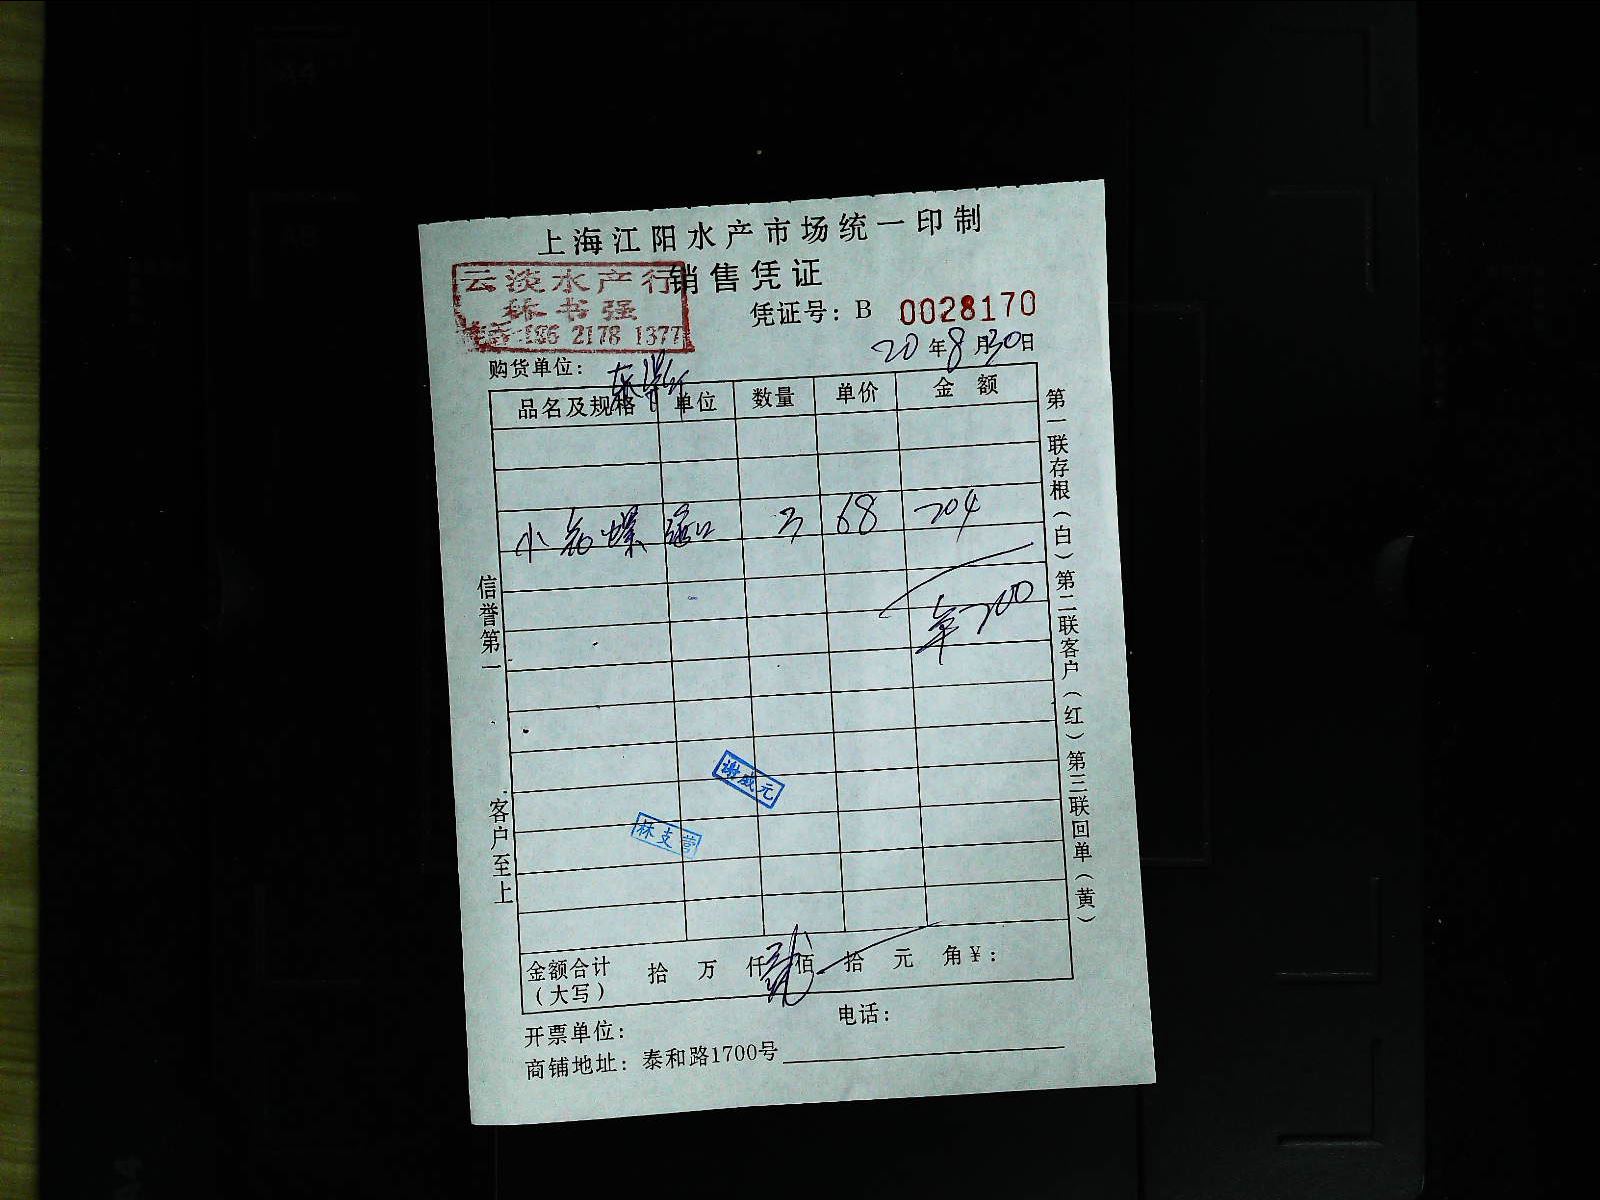 上海江阳水产市场统一印制
销售凭证
云淡水产行
林书强
186 2178 1377
凭证号：B 0028170
20年8月30日
购货单位：
品名及规格 单位 数量 单价 金额
小 螺 3 68 204
200
信誉第一
客户至上
第一联存根（白）第二联客户（红）第三联回单（黄）
谢威元
林支营
金额合计（大写） 拾 万 仟 贰 佰 拾 元 角 ¥：
开票单位： 电话：
商铺地址：泰和路1700号